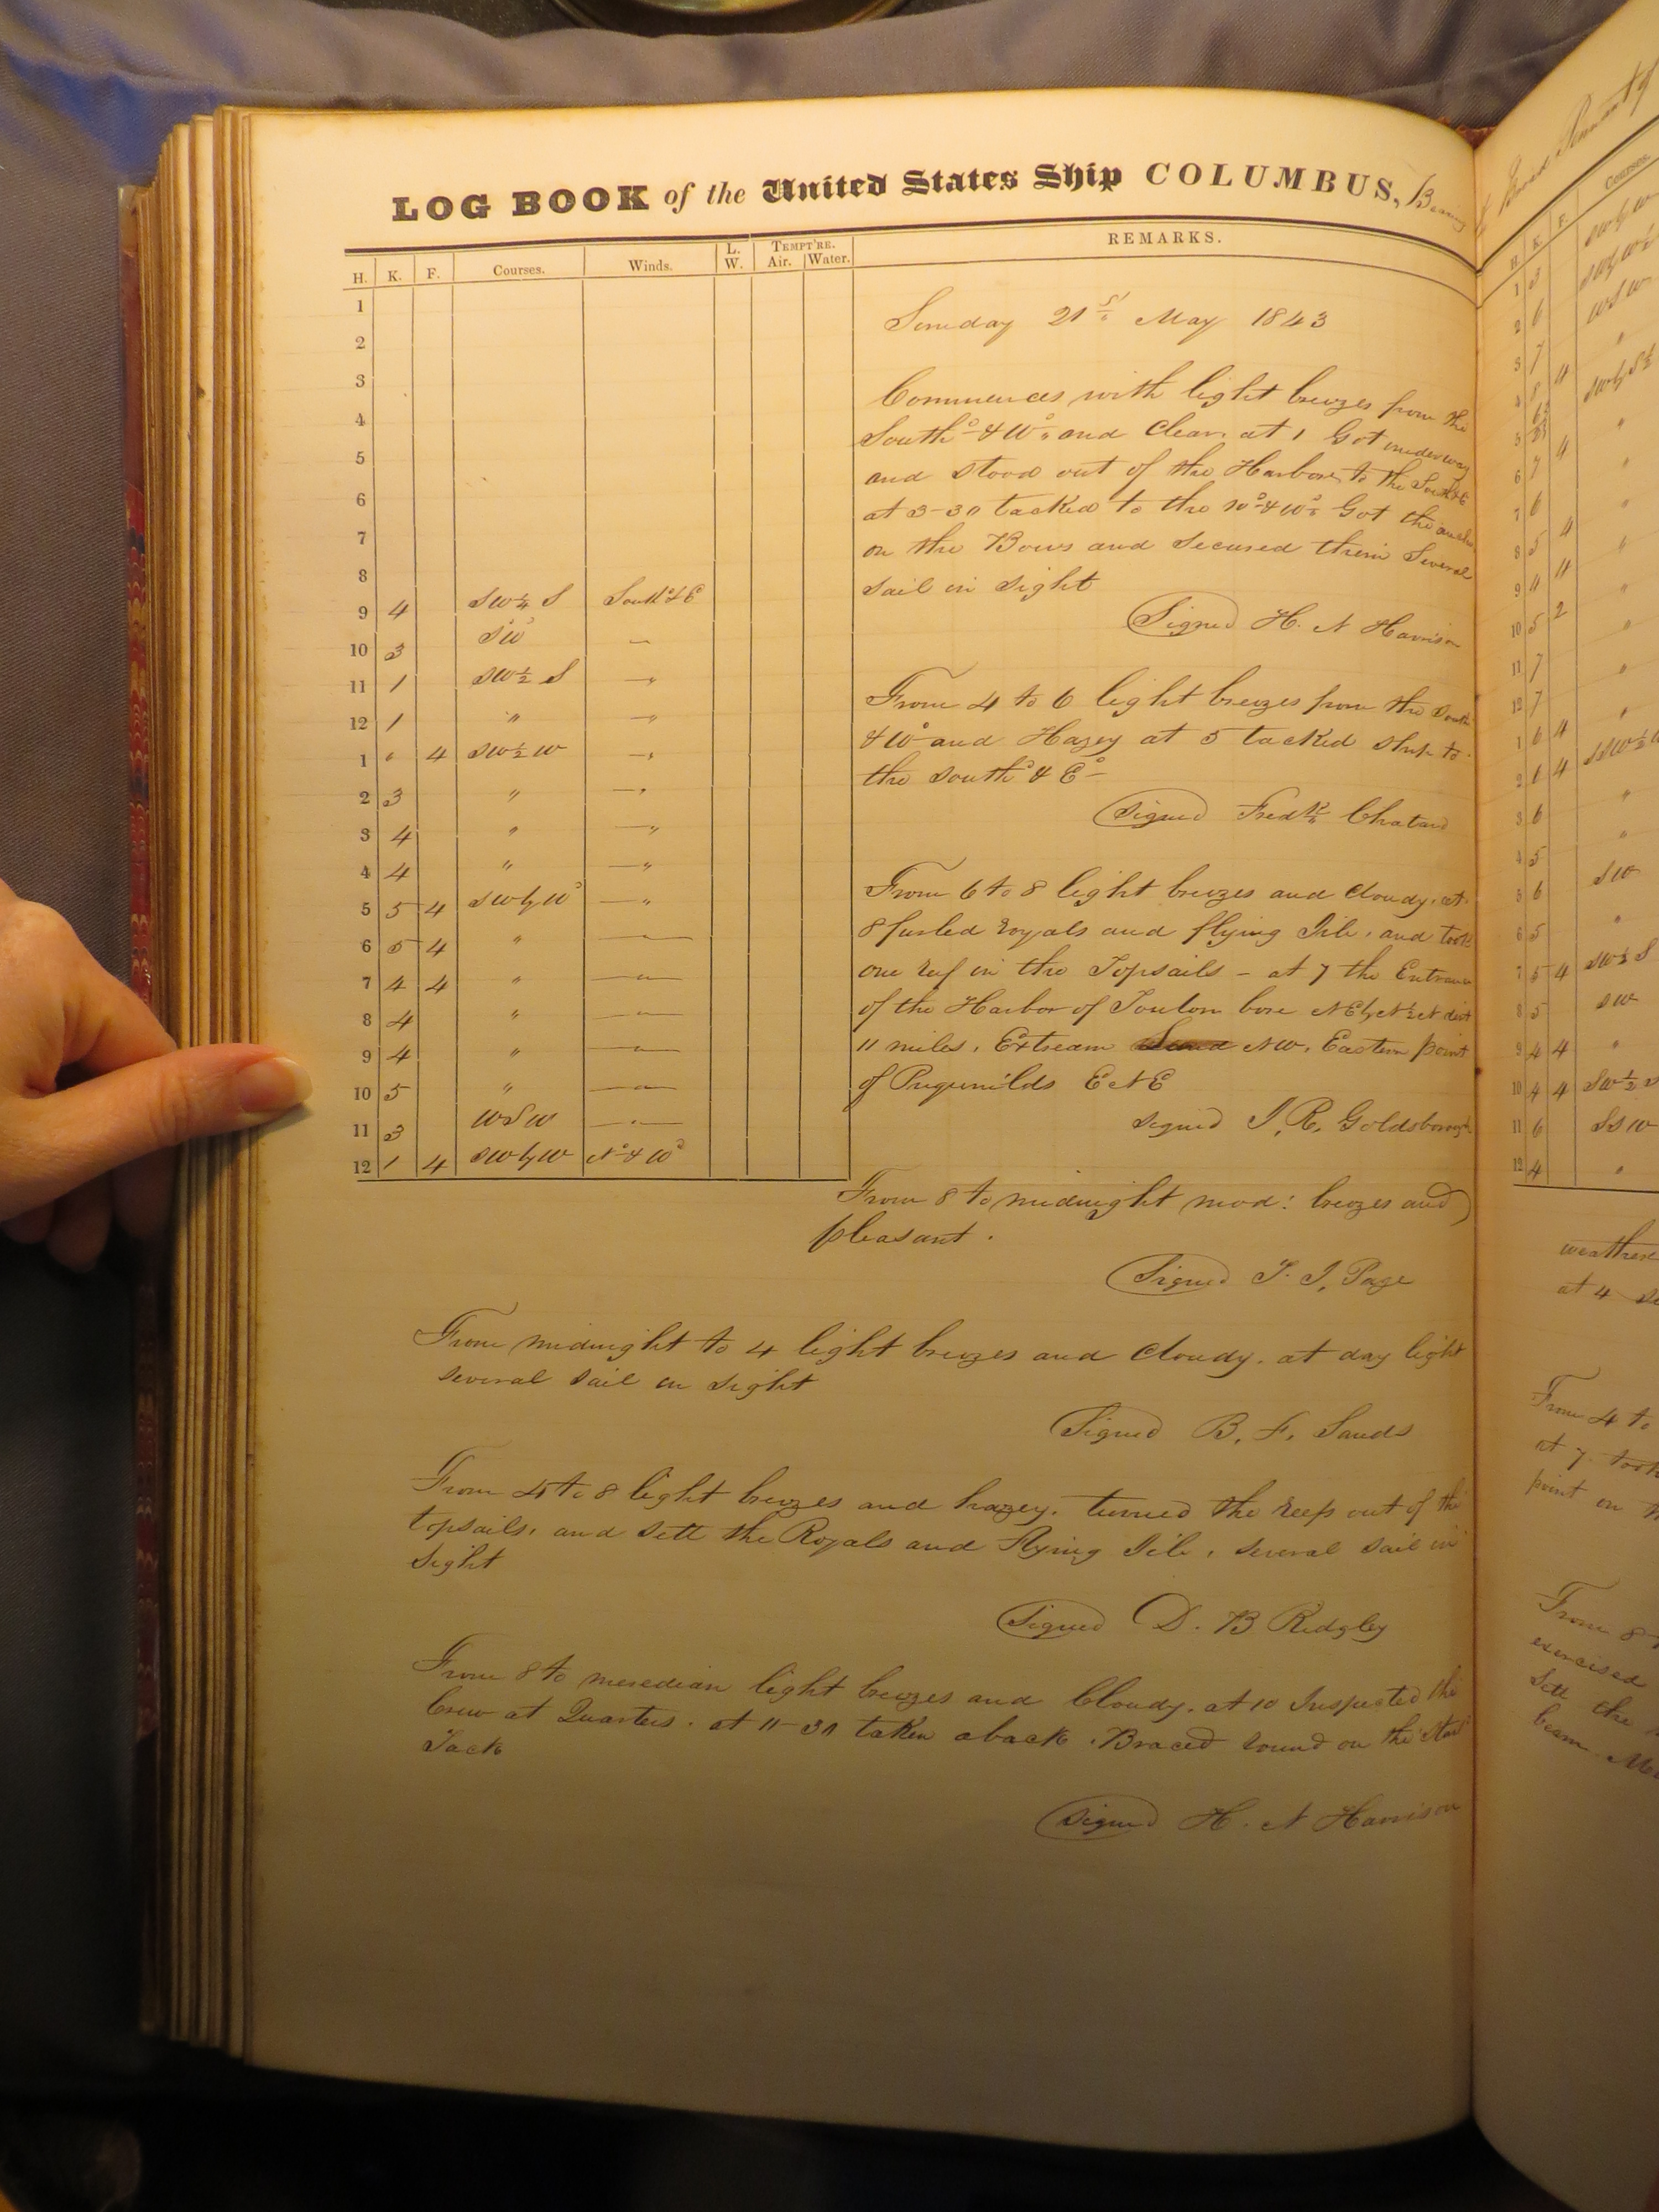 LOG BOOK of the United States Ship COLUMBUS,
H. K. F. Courses. Winds. L. W. TEMPT'RE. Air. Water. REMARKS.
1
2
3
4
5
6
7
8
9 4 SW¼ S South & E
10 3 SW —
11 1 SW½ S — "
12 1 " — "
1 " 4 SW½ W — "
2 3 " — "
3 4 " — "
4 4 " — "
5 5 4 SW by W — "
6 5 4 " — " —
7 4 4 " — " —
8 4 " — " —
9 4 " — " —
10 5 " — " —
11 3 WSW — " —
12 1 4 SW by W N & W
Sunday 21st May 1843
Commences with light breezes from the
South & W and Clear. at 1 Got underway
and stood out of the Harbor to the South & E
at 3-30 tacked to the No & W. Got the
on the Bows and Secured them Several
sail in sight
Signed H. N Harrison
From 4 to 6 light breezes from the South
& W and Hazey at 5 tacked ship to
the South & E
Signed Fredk Chatard
From 6 to 8 light breezes and Cloudy. at
8 furled royals and flying Jib. and took
one reef in the Topsails - at 7 the Entrance
of the Harbor of Toulon bore NE by N½N dist
11 miles. Extream NW. Eastern point
of ENE
signed J. R. Goldsborough
From 8 to midnight mod: breezes and
pleasant.
Signed T. J. Page
From midnight to 4 light breezes and Cloudy. at day light
several sail in sight
Signed B. F. Sands
From 4 to 8 light breezes and hazey. turned the reefs out of the
topsails. and sett the Royals and flying Jib. several sail in
sight
Signed D. B Ridgley
From 8 to meredian light breezes and Cloudy. at 10 Inspected the
Crew at Quarters. at 11-30 taken aback. Braced round on the Star
Tack
Signed H. N Harrison
Courses.
H. K. F.
1 3 SW by W
2 6
3 7 WSW
4 8 4
5
6 7 4
7 6
8 5 4
9 4
10 5 2
11 7
12 7
1 6 4
2 4
3 6
4 5
5 6 SW
6 5
7 5 4
8 5 SW
9 4 4
10 4 4
11 6 SSW
12 4
weather
at 4
From 4 to
at 7 took
point on
From 8
exercised
Sett the
beam